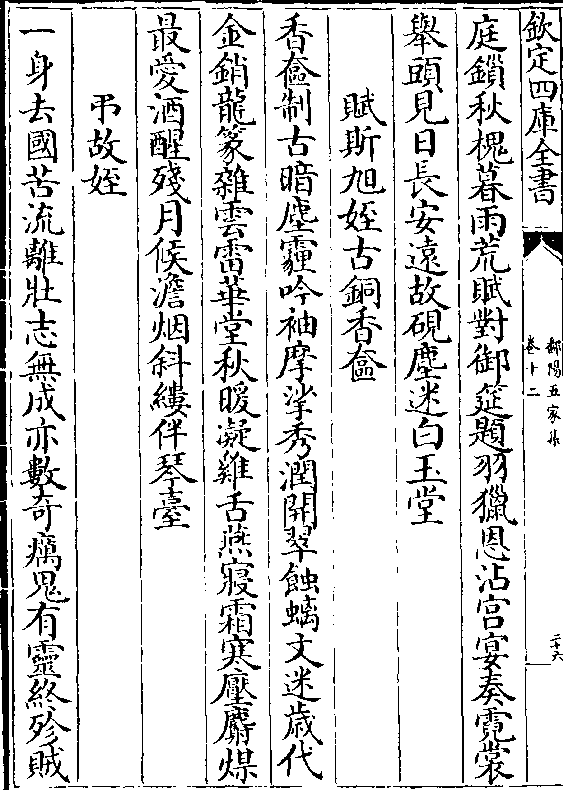 欽定四庫全書
鄱陽五家集
卷十二
二十六
庭鎖秋槐暮雨荒賦對御筵題羽獵恩沾宫宴奏霓裳
舉頭見日長安遠故硯塵迷白玉堂
賦斯旭姪古銅香奩
香奩制古暗塵霾吟袖摩挲秀潤開翠蝕螭文迷歳代
金銷龍篆雜雲雷華堂秋暖凝雞舌燕寢霜寒壓麝煤
最愛酒醒殘月候澹烟斜縷伴琴臺
弔故姪
一身去國苦流離壯志無成亦數奇癘鬼有靈終殄賊